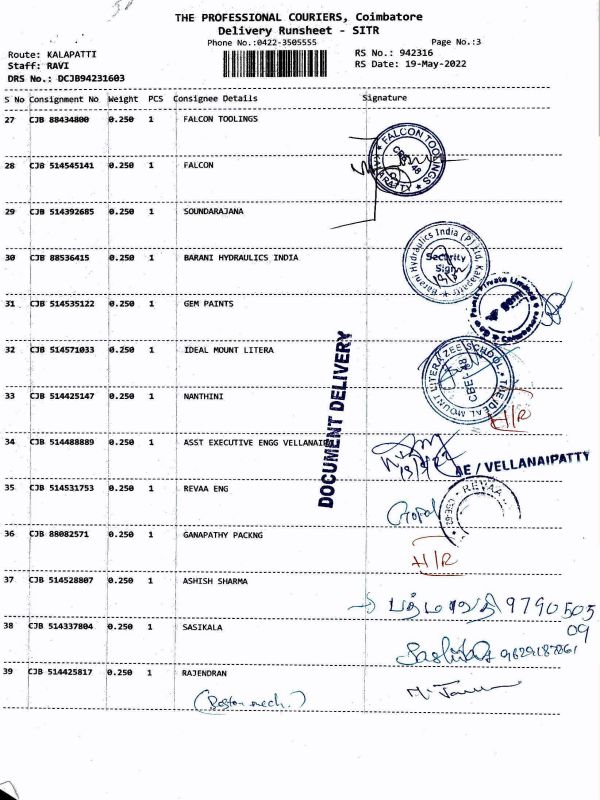 SITR
THE PROFESSIONAL COURIERS, Coimbatore
Delivery Runsheet - SITR
Phone No.:0422-3505555
Page No.:3
Route: KALAPATTI
RS No.: 942316
Staff: RAVI
RS Date: 19-May-2022
DRS No.: DCJB94231603
S No Consignment No Weight PCS Consignee Details Signature
27 CJB 88434800 0.250 1 FALCON TOOLINGS
★ FALCON TOOLINGS ★
28 CJB 514545141 0.250 1 FALCON
29 CJB 514392685 0.250 1 SOUNDARAJANA
Barani Hydraulics India (P) Ltd, Kalapatti
Security
Sign
30 CJB 88536415 0.250 1 BARANI HYDRAULICS INDIA
31 CJB 514535122 0.250 1 GEM PAINTS
Paints Private Limited
gem
Coimbatore
32 CJB 514571033 0.250 1 IDEAL MOUNT LITERA
THE IDEAL MOUNT LITERA ZEE SCHOOL
CBE-48
33 CJB 514425147 0.250 1 NANTHINI
H/R
DOCUMENT DELIVERY
34 CJB 514488889 0.250 1 ASST EXECUTIVE ENGG VELLANAIPA
AE / VELLANAIPATTY
35 CJB 514531753 0.250 1 REVAA ENG
Gopal
REVAA
36 CJB 88082571 0.250 1 GANAPATHY PACKNG
H/R
37 CJB 514528807 0.250 1 ASHISH SHARMA
பத்மாவதி 9790505
09
38 CJB 514337804 0.250 1 SASIKALA
39 CJB 514425817 0.250 1 RAJENDRAN